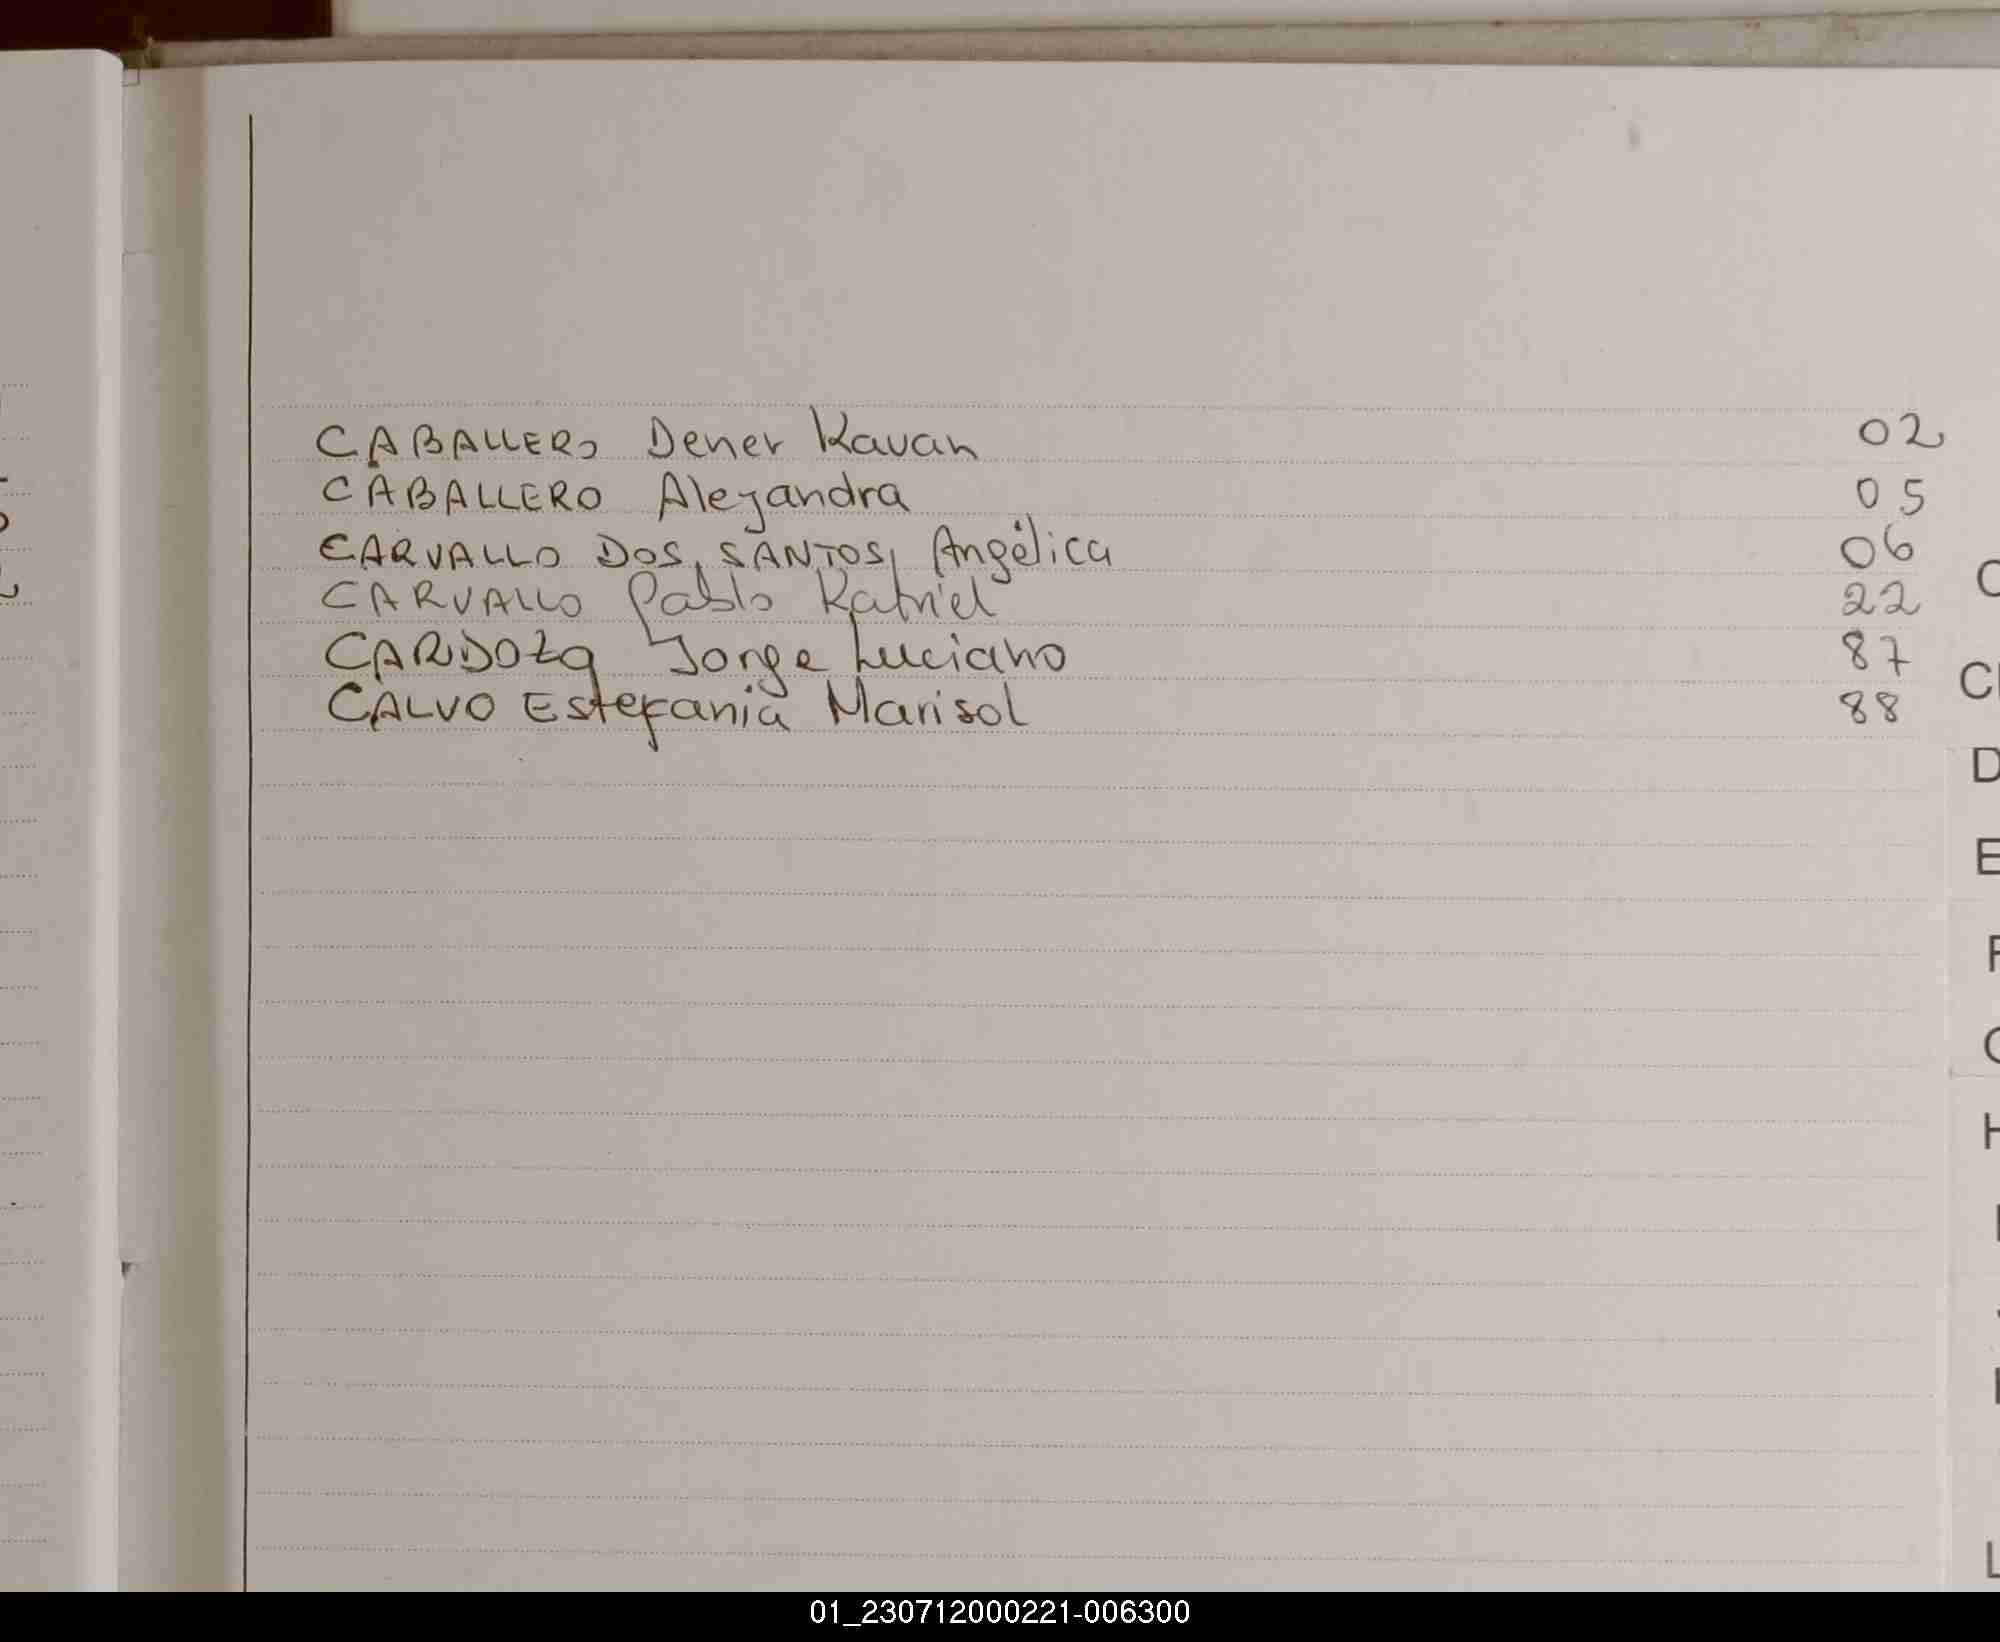 CABALLERO Dener Kauan 02
CABALLERO Alejandra 05
CARVALLO DOS SANTOS, Angélica 06
CARVALLO Pablo Katriel 22
CARDOZA Jorge Luciano 87
CALVO Estefania Marisol 88
C
D
E
F
H
L
01_230712000221-006300